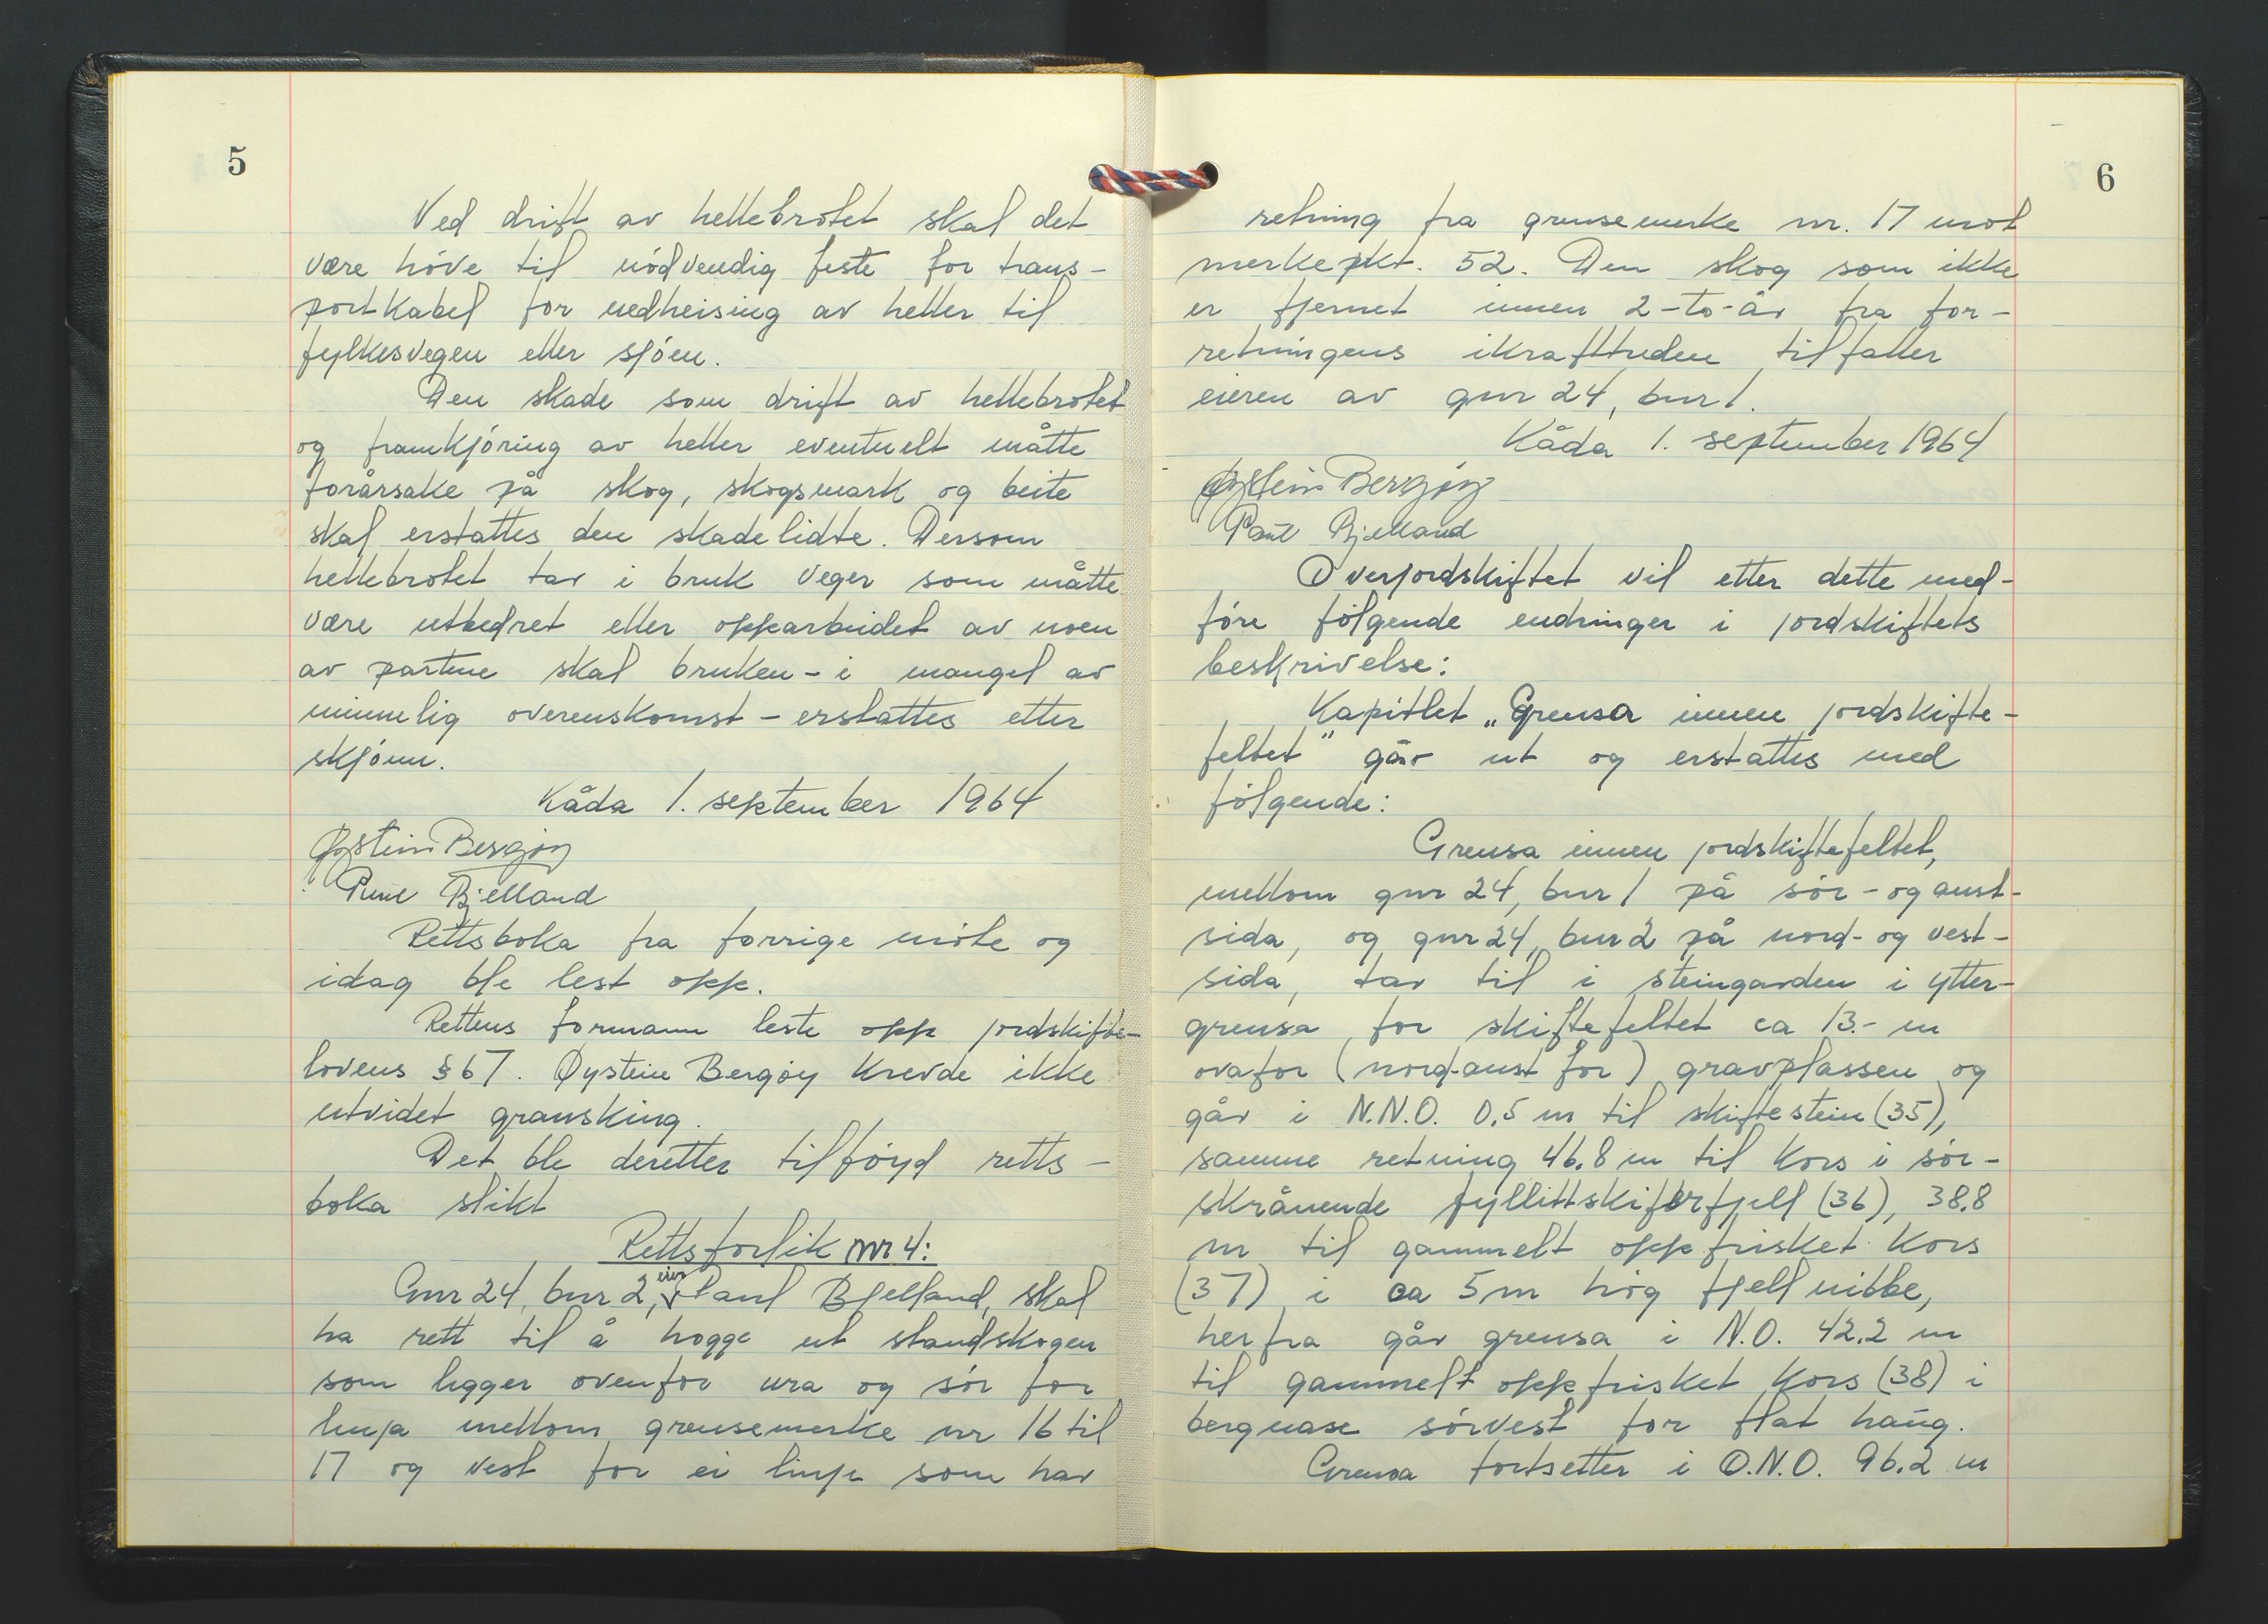 5
Ved drift av hellebrotet skal det
være höve til nödvendig feste for trans-
portkabel for nedheising av heller til
fylkesvegen eller sjöen.
Den skade som drift av hellebrotet
og framkjöring av heller eventuelt måtte
forårsake på skog, skogsmark og beite
skal erstattes den skadelidte. Dersom
hellebrotet tar i bruk veger som måtte
være utbedret eller opparbeidet av noen
av partene skal bruken - i mangel av
minnelig overenskomst - erstattes etter
skjönn.
Kåda 1. september 1964
Øystein Bergøy
Paul Bjelland
Rettsboka fra forrige möte og
idag ble lest opp.
Rettens formann leste opp jordskifte-
lovens § 67. Øystein Bergøy krevde ikke
utvidet gransking.
Det ble deretter tilföyd retts-
boka slikt
Rettsforlik nr 4:
Gnr 24, bnr 2, eier Paul Bjelland, skal
ha rett til å hogge ut standskogen
som ligger ovenfor ura og sör for
linja mellom grensemerke nr 16 til
17 og vest for ei linje som har
6
retning fra grensemerke nr. 17 mot
merkepkt. 52. Den skog som ikke
er fjernet innen 2-to-år fra for-
retningens ikrafttreden tilfaller
eieren av gnr 24, bnr 1.
Kåda 1. september 1964
Øystein Bergøy
Paul Bjelland
Overjordskiftet vil etter dette med-
före fölgende endringer i jordskiftets
beskrivelse:
Kapitlet „Grensa innen jordskifte-
feltet" går ut og erstattes med
fölgende:
Grensa innen jordskiftefeltet,
mellom gnr 24, bnr 1 på sör- og aust-
sida, og gnr 24, bnr 2 på nord- og vest-
sida, tar til i steingarden i ytter-
grensa for skiftefeltet ca 13.- m
ovafor (nord-aust for) gravplassen og
går i N.N.O. 0,5 m til skiftestein (35),
samme retning 46.8 m til kors i sör-
skrånende fyllittskiferfjell (36), 38,8
m til gammelt oppfrisket kors
(37) i ca 5 m hög fjellnibbe,
herfra går grensa i N.O. 42.2 m
til gammelt oppfrisket kors (38) i
bergnase sörvest for flat haug.
Grensa fortsetter i O.N.O. 96.2 m